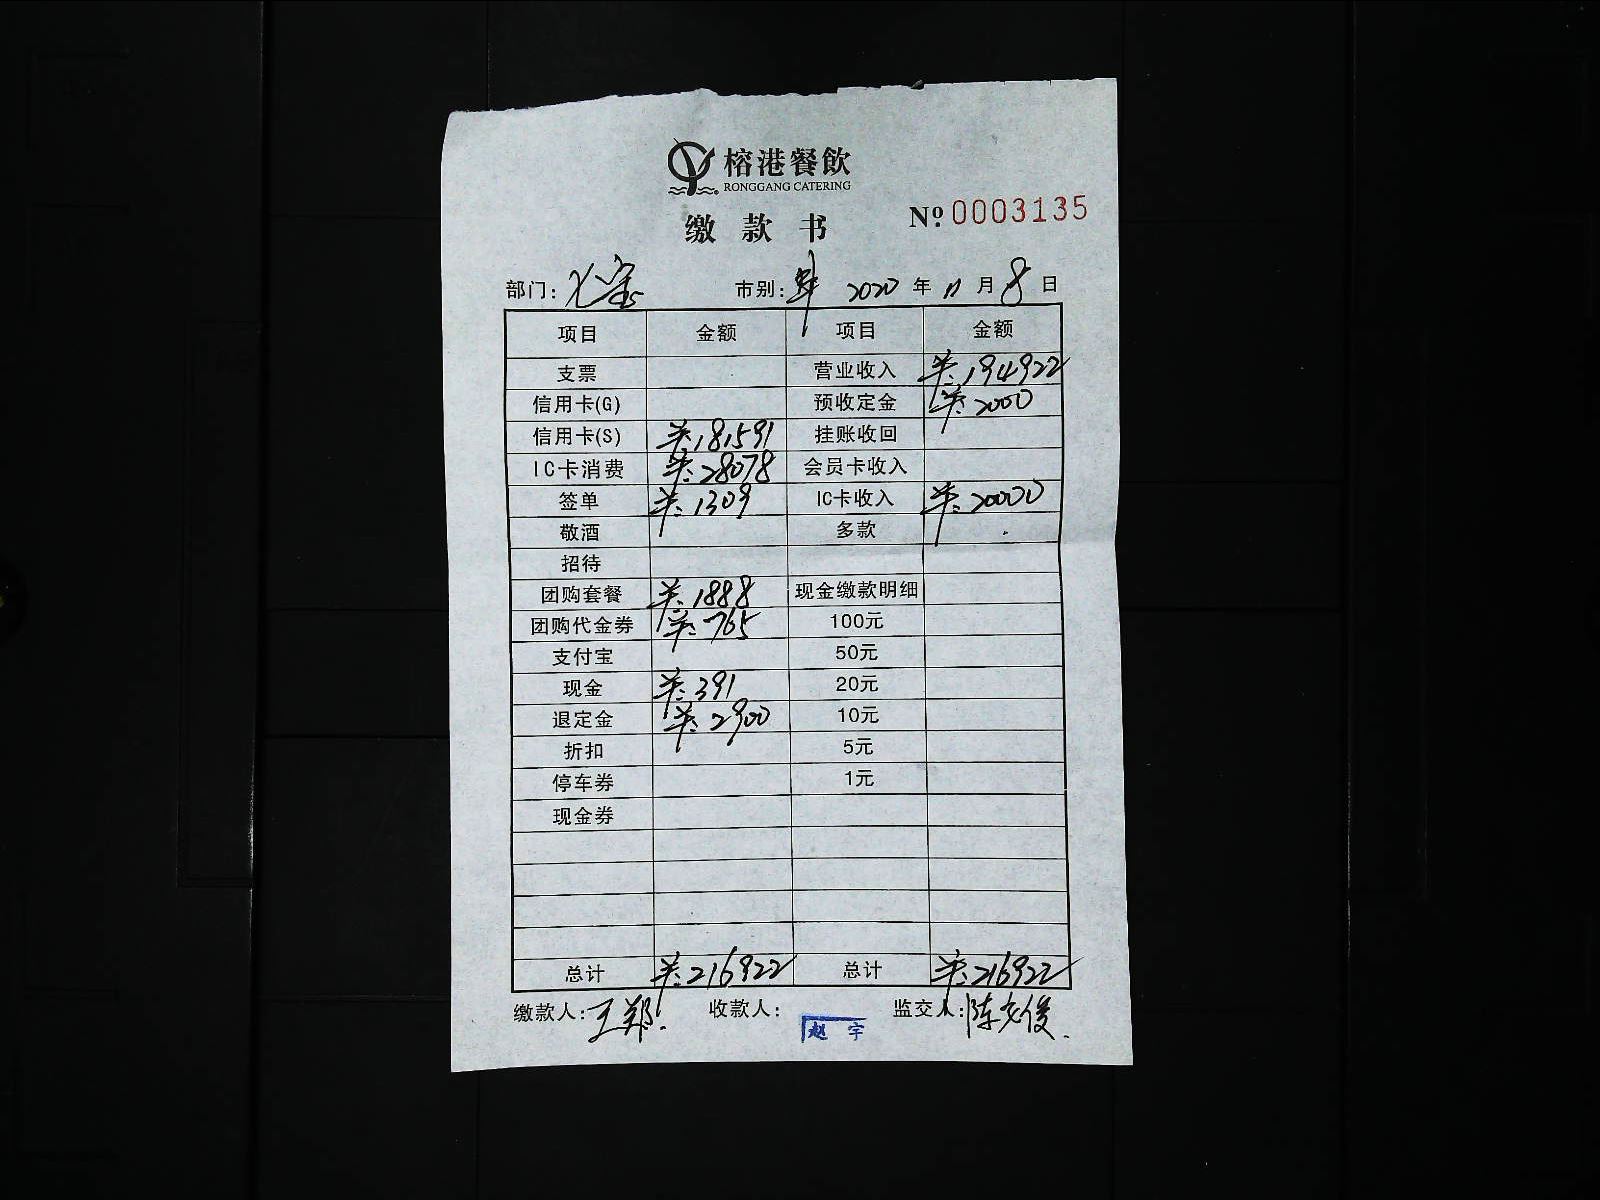 榕港餐飲
RONGGANG CATERING
缴款书 Nº 0003135
部门: 市别: 2020 年 11 月 8 日
项目 金额 项目 金额
支票 营业收入 ¥:194922
信用卡(G) 预收定金 ¥:2000
信用卡(S) ¥:181591 挂账收回
IC卡消费 ¥:28078 会员卡收入
签单 ¥:1309 IC卡收入 ¥:20000
敬酒 多款
招待
团购套餐 ¥:1888 现金缴款明细
团购代金券 ¥:765 100元
支付宝 50元
现金 ¥:391 20元
退定金 ¥:2900 10元
折扣 5元
停车券 1元
现金券
总计 ¥:216922 总计 ¥:216922
缴款人:王郑. 收款人: 赵宇 监交人:陈文俊.